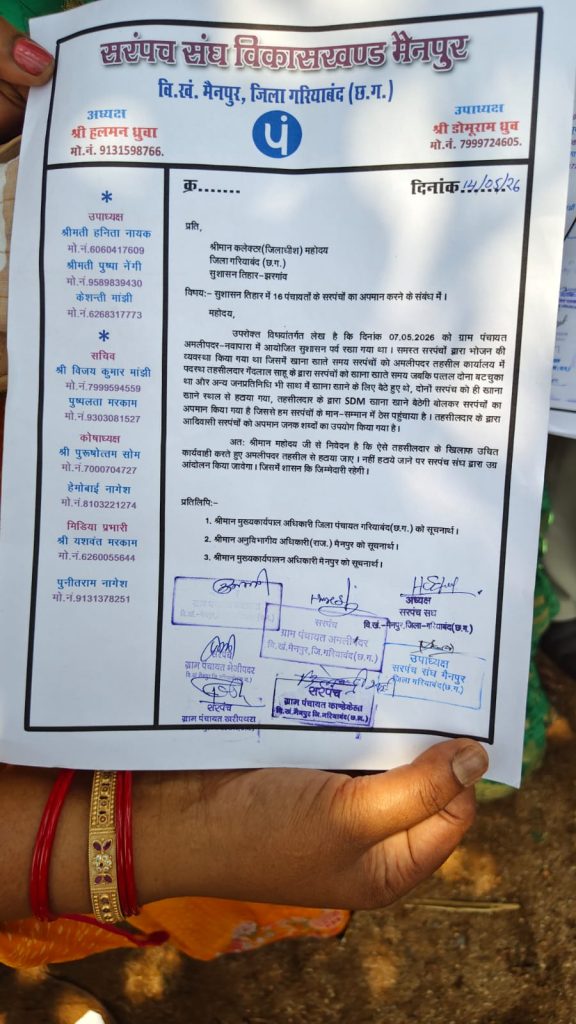 सरपंच संघ विकासखण्ड मैनपुर
वि.खं. मैनपुर, जिला गरियाबंद (छ.ग.)
अध्यक्ष
श्री हलमन ध्रुवा
मो.नं. 9131598766.
पं
उपाध्यक्ष
श्री डोमूराम ध्रुव
मो.नं. 7999724605.
*
उपाध्यक्ष
श्रीमती हनिता नायक
मो.नं.6060417609
श्रीमती पुष्पा नेंगी
मो.नं.9589839430
केशन्ती मांझी
मो.नं.6268317773
*
सचिव
श्री विजय कुमार मांझी
मो.नं.7999594559
पुष्पलता मरकाम
मो.नं.9303081527
कोषाध्यक्ष
श्री पुरूषोत्तम सोम
मो.नं.7000704727
हेमोबाई नागेश
मो.नं.8103221274
मिडिया प्रभारी
श्री यशवंत मरकाम
मो.नं.6260055644
पुनीतराम नागेश
मो.नं.9131378251
क्र.......
दिनांक 14/05/26
प्रति,
श्रीमान कलेक्टर(जिलाधीश) महोदय
जिला गरियाबंद (छ.ग.)
सुशासन तिहार-झरगांव
विषय:- सुशासन तिहार में 16 पंचायतों के सरपंचों का अपमान करने के संबंध में।
महोदय,
उपरोक्त विषयांतर्गत लेख है कि दिनांक 07.05.2026 को ग्राम पंचायत
अमलीपदर-नवापारा में आयोजित सुशासन पर्व रखा गया था। समस्त सरपंचों द्वारा भोजन की
व्यवस्था किया गया था जिसमें खाना खाते समय सरपंचों को अमलीपदर तहसील कार्यालय में
पदस्थ तहसीलदार गेंदलाल साहू के द्वारा सरपंचों को खाना खाते समय जबकि पत्तल दोना बटचुका
था और अन्य जनप्रतिनिधि भी साथ में खाना खाने के लिए बेठे हुए थे, दोनों सरपंच को ही खाना
खाने स्थल से हठाया गया, तहसीलदार के द्वारा SDM खाना खाने बेठेगी बोलकर सरपंचों का
अपमान किया गया है जिससे हम सरपंचों के मान-सम्मान में ठेस पहुंचाया है। तहसीलदार के द्वारा
आदिवासी सरपंचों को अपमान जनक शब्दों का उपयोग किया गया है।
अतः श्रीमान महोदय जी से निवेदन है कि ऐसे तहसीलदार के खिलाफ उचित
कार्यवाही करते हुए अमलीपदर तहसील से हटाया जाए। नहीं हठाये जाने पर सरपंच संघ द्वारा उग्र
आंदोलन किया जावेगा। जिसमें शासन कि जिम्मेदारी रहेगी।
प्रतिलिपि:-
1. श्रीमान मुख्यकार्यपाल अधिकारी जिला पंचायत गरियाबंद(छ.ग.) को सूचनार्थ।
2. श्रीमान अनुविभागीय अधिकारी(राज.) मैनपुर को सूचनार्थ।
3. श्रीमान मुख्यकार्यपालन अधिकारी मैनपुर को सूचनार्थ।
अध्यक्ष
सरपंच संघ
वि.खं.-मैनपुर,जिला-गरियाबंद(छ.ग.)
सरपंच
ग्राम पंचायत अमलीपदर
वि.खं.मैनपुर,जि.गरियाबंद(छ.ग.)
उपाध्यक्ष
सरपंच संघ मैनपुर
जिला गरियाबंद (छ.ग.)
सरपंच
ग्राम पंचायत
सरपंच
ग्राम पंचायत
सरपंच
ग्राम पंचायत
वि.खं.मैनपुर जि.गरियाबंद(छ.ग.)